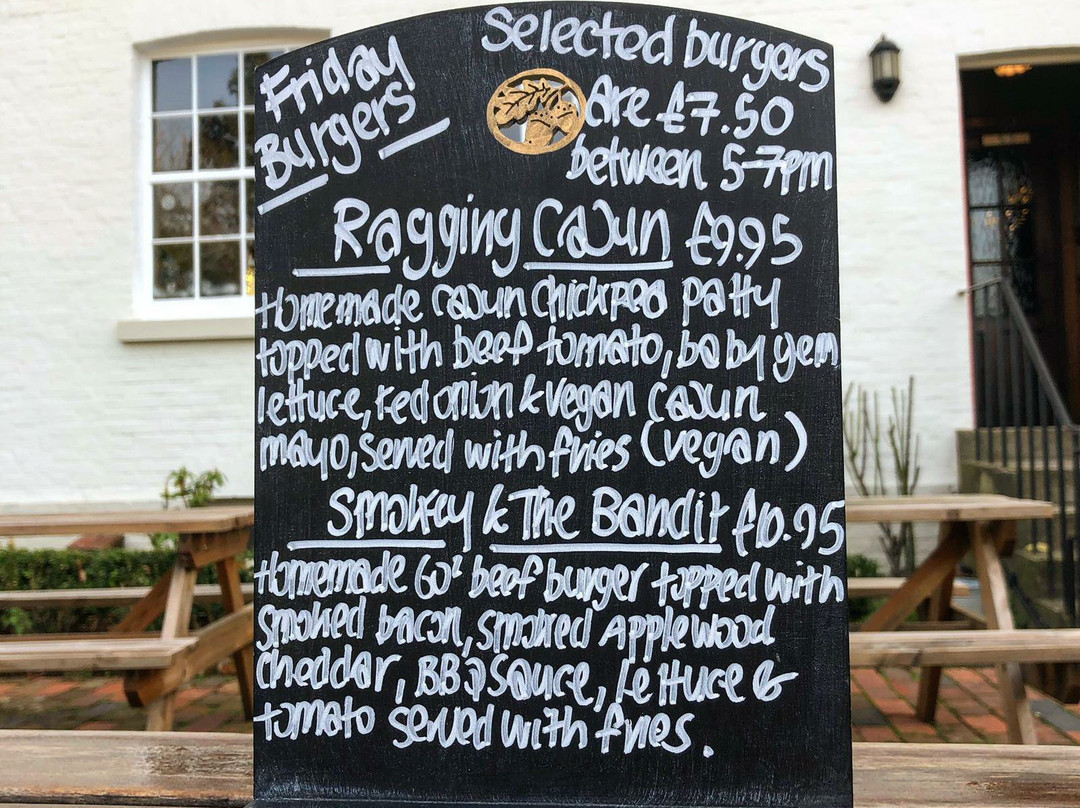 Friday
Burgers
Selected burgers
Are £7.50
between 5-7pm
Ragging Cajun £9.95
Homemade cajun chickpea patty
topped with beef tomato, baby gem
lettuce, red onion & vegan cajun
mayo, served with fries (vegan)
Smokey & The Bandit £10.95
Homemade 6oz beef burger topped with
smoked bacon, smoked Applewood
cheddar, BBQ sauce, lettuce &
tomato served with fries.